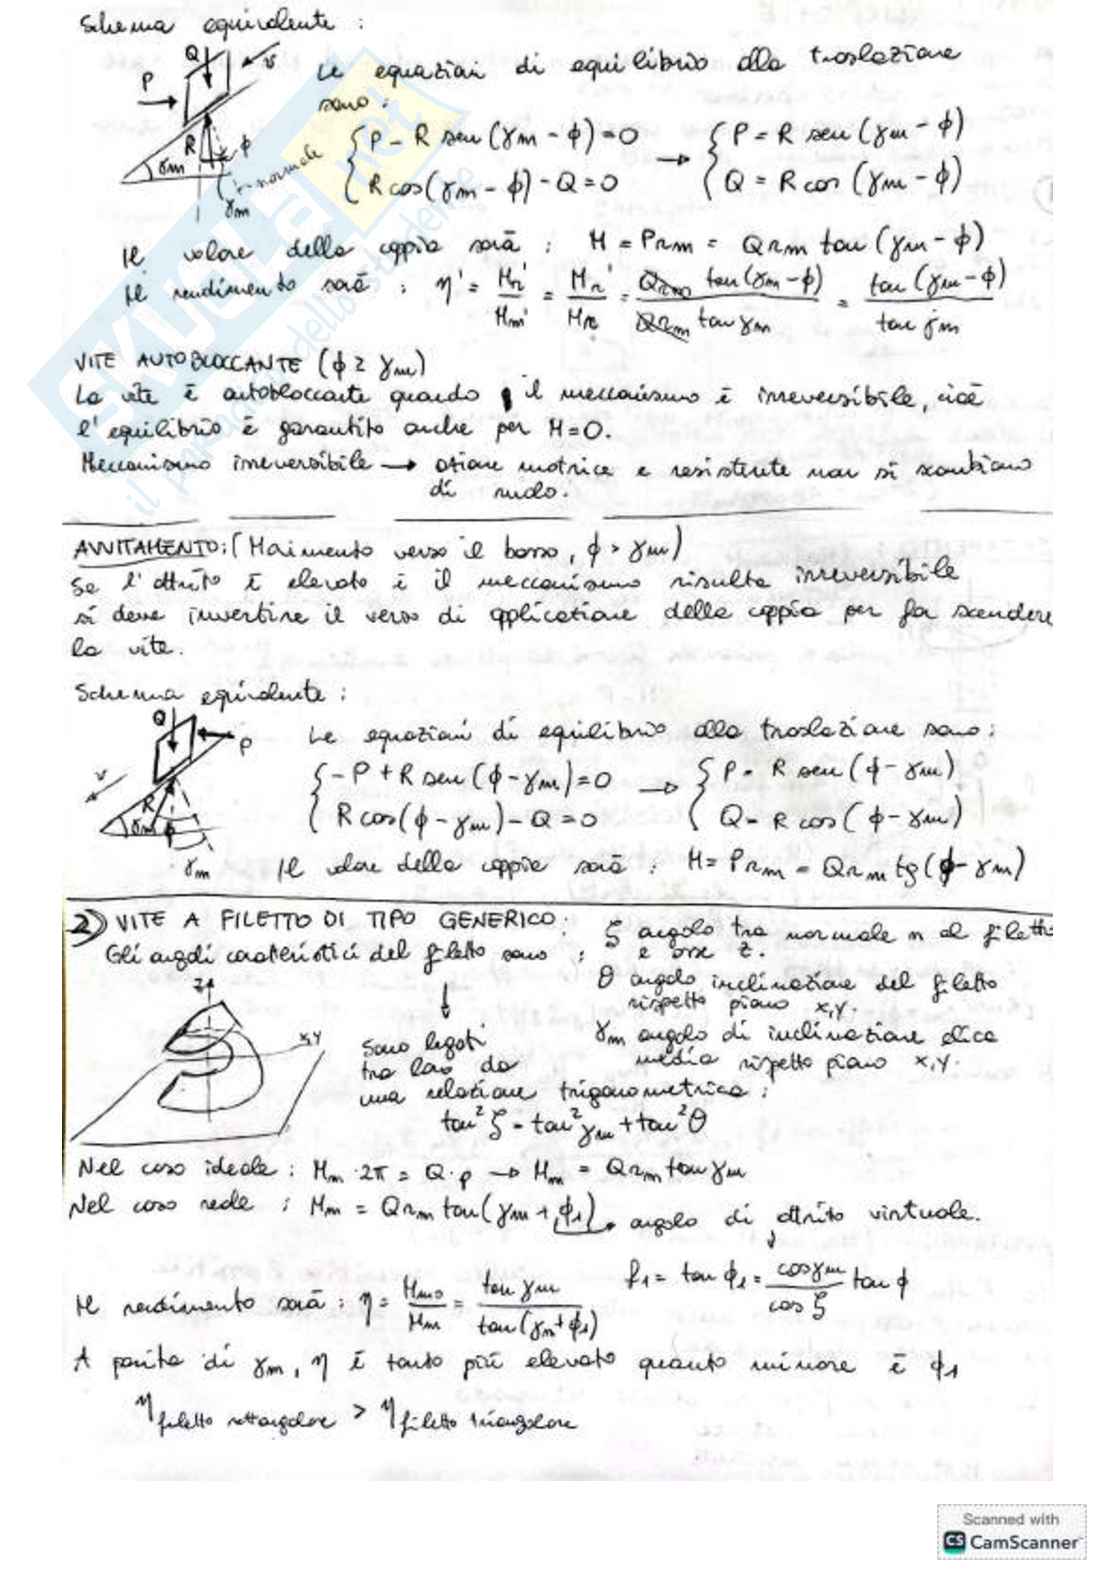 Schema equivalente :
Q v
P
R ϕ
γm
normale
γm
Le equazioni di equilibrio alla traslazione
sono :
{ P - R sen (γm - ϕ) = 0 → { P = R sen (γm - ϕ)
{ R cos (γm - ϕ) - Q = 0 { Q = R cos (γm - ϕ)
Il valore della coppia sarà : M = P rm = Q rm tan (γm - ϕ)
Il rendimento sarà : η' = Mr'/Mm' = Mr'/Mr = Q rm tan (γm - ϕ) / Q rm tan γm = tan (γm - ϕ) / tan γm
VITE AUTOBLOCCANTE (ϕ ≥ γm)
La vite è autobloccante quando il meccanismo è irreversibile, cioè
l'equilibrio è garantito anche per M=0.
Meccanismo irreversibile → azione motrice e resistente non si scambiano
di ruolo.
AVVITAMENTO: (Movimento verso il basso, ϕ > γm)
Se l'attrito è elevato e il meccanismo risulta irreversibile
si deve invertire il verso di applicazione della coppia per far scendere
la vite.
Schema equivalente :
Q
P
v
R
γm ϕ
γm
Le equazioni di equilibrio alla traslazione sono :
{ -P + R sen (ϕ - γm) = 0 → { P = R sen (ϕ - γm)
{ R cos (ϕ - γm) - Q = 0 { Q = R cos (ϕ - γm)
Il valore della coppia sarà : M = P rm = Q rm tg (ϕ - γm)
2) VITE A FILETTO DI TIPO GENERICO :
Gli angoli caratteristici del filetto sono :
ζ angolo tra normale n al filetto
e asse z.
θ angolo inclinazione del filetto
rispetto piano x,y.
γm angolo di inclinazione elica
media rispetto piano x,y.
z
x,y
↓
sono legati
tra loro da
una relazione trigonometrica :
tan² ζ = tan² γm + tan² θ
Nel caso ideale : Mm · 2π = Q · p → Mm = Q rm tan γm
Nel caso reale : Mm = Q rm tan (γm + ϕ1) → angolo di attrito virtuale.
↓
f1 = tan ϕ1 = cos γm / cos ζ tan ϕ
Il rendimento sarà : η = Mmo / Mm = tan γm / tan (γm + ϕ1)
A parità di γm, η è tanto più elevato quanto minore è ϕ1
η filetto rettangolare > η filetto triangolare
SKUOLA.net
il paradiso dello studente
Scanned with
CS CamScanner